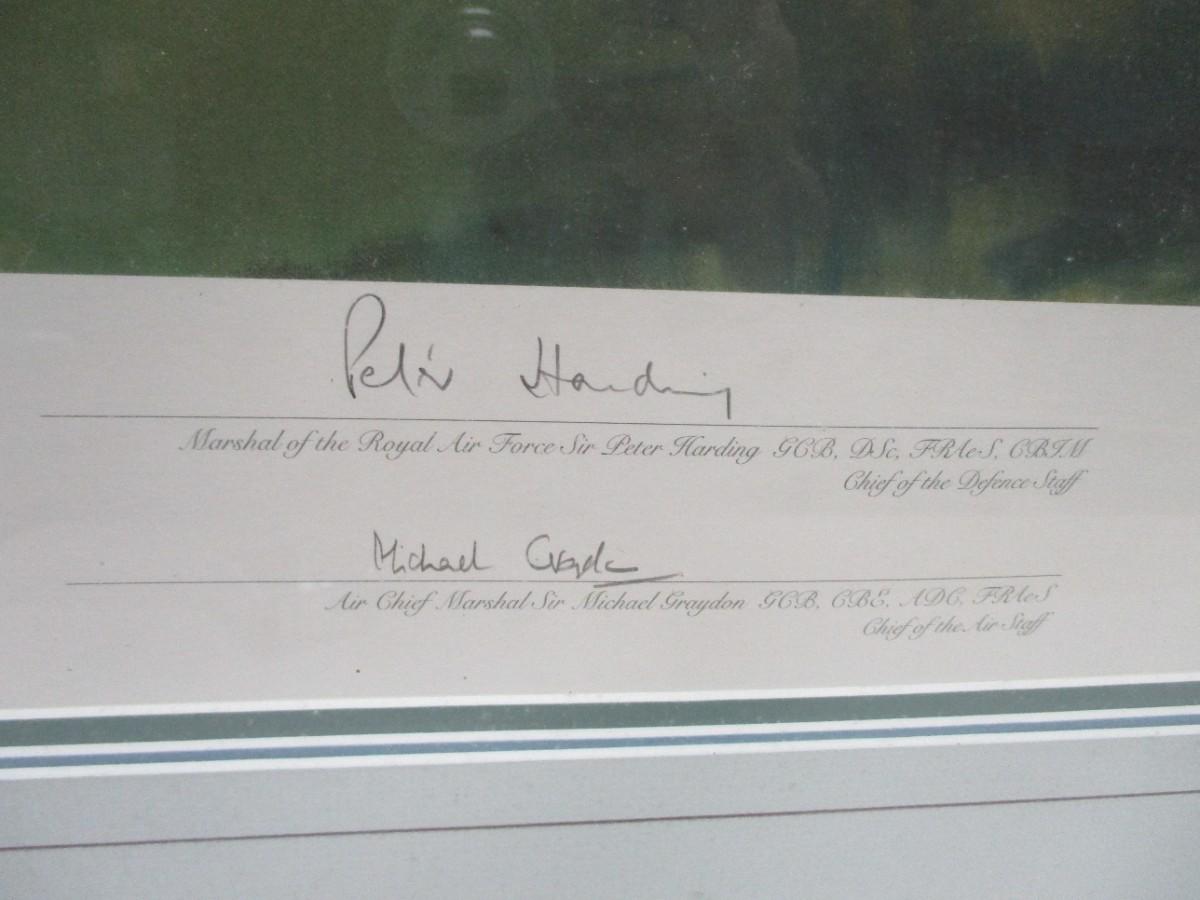 Peter Harding
Marshal of the Royal Air Force Sir Peter Harding GCB, DSc, FRAeS, CBIM
Chief of the Defence Staff
Michael Graydon
Air Chief Marshal Sir Michael Graydon GCB, CBE, ADC, FRAeS
Chief of the Air Staff